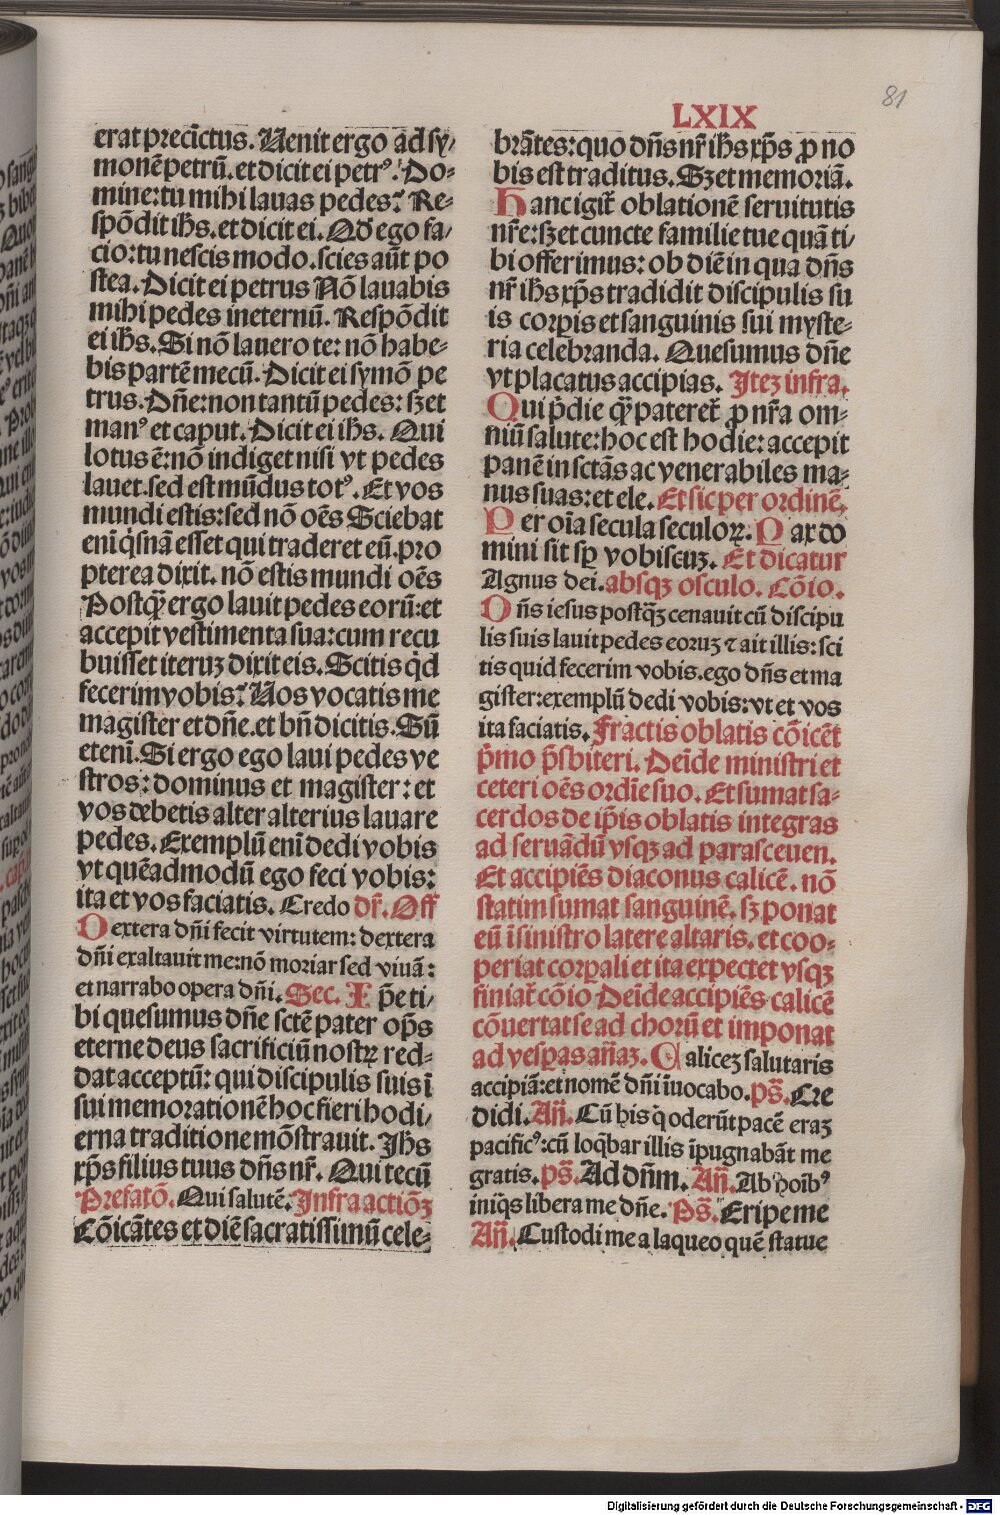 81
LXIX
erat precīctus. Uenit ergo ad sy/
monē petrū. et dicit ei petrꝰ. Do⸗
mine: tu mihi lauas pedes? Re⸗
spōdit ihs̄. et dicit ei. Qd̄ ego fa/
cio: tu nescis modo. scies aūt po
stea. Dicit ei petrus Nō lauabis
mihi pedes ineternū. Respōdit
ei ihs̄. Si nō lauero te: nō habe⸗
bis partē mecū. Dicit ei symō pe
trus. Dn̄e: non tantū pedes: sꝫ et
manꝰ et caput. Dicit ei ihs̄. Qui
lotus ē: nō indiget nisi vt pedes
lauet. sed est mūdus totꝰ. Et vos
mundi estis: sed nō oēs Sciebat
enī q̇snā esset qui traderet eū. pro
pterea dixit. nō estis mundi oēs
Postq̄ꝫ ergo lauit pedes eorū: et
accepit vestimenta sua: cum recu
buisset iteruꝫ dixit eis. Scitis qd̄
fecerim vobis? Uos vocatis me
magister et dn̄e. et bn̄ dicitis. Sū
etenī. Si ergo ego laui pedes ve
stros: dominus et magister: et
vos debetis alter alterius lauare
pedes. Exemplū enī dedi vobis
vt quēadmodū ego feci vobis:
ita et vos faciatis. Credo dr̄. Off̄
Dextera dn̄i fecit virtutem: dextera
dn̄i exaltauit me: nō moriar sed viuā:
et narrabo opera dn̄i. Sec. Ipē te ti/
bi quesumus dn̄e scte̅ pater op̄s
eterne deus sacrificiū nostꝝ red⸗
dat acceptū: qui discipulis suis ī
sui memorationē hoc fieri hodi/
erna traditione mōstrauit. Jhs̄
xp̄s filius tuus dn̄s nr̄. Qui tecū
Prefatō. Qui salutē. Infra actiōꝫ
Cōicātes et diē sacratissimū cele⸗
brātes: quo dn̄s nr̄ ihs̄ xp̄s ꝓ no
bis est traditus. Sꝫ et memoriā.
Hanc igit̄ oblationē seruitutis
nr̄e: sꝫ et cuncte familie tue quā ti/
bi offerimus: ob diē in qua dn̄s
nr̄ ihs̄ xp̄s tradidit discipulis su
is corꝑis et sanguinis sui myste⸗
ria celebranda. Quesumus dn̄e
vt placatus accipias. Iteꝫ infra.
Qui p̄die q̄ꝫ pateret̄ ꝓ nr̄a om⸗
niū salute: hoc est hodie: accepit
panē in sctās ac venerabiles ma⸗
nus suas: et ele. Et sic per ordinē.
Per oīa secula seculoꝝ. Pax do
mini sit sꝑ vobiscuꝫ. Et dicatur
Agnus dei. absqꝫ osculo. Cōio.
Dn̄s iesus postq̄ꝫ cenauit cū discipu
lis suis lauit pedes eoruꝫ ⁊ ait illis: sci
tis quid fecerim vobis. ego dn̄s et ma
gister: exemplū dedi vobis: vt et vos
ita faciatis. Fractis oblatis cōicēt
p̄mo p̄sbiteri. Deīde ministri et
ceteri oēs ordīe suo. Et sumat sa⸗
cerdos de ip̄is oblatis integras
ad seruādū vsqꝫ ad parasceuen.
Et accipiēs diaconus calicē. nō
statim sumat sanguinē. sꝫ ponat
eū ī sinistro latere altaris. et coo⸗
periat corꝑali et ita expectet vsqꝫ
finiat̄ cōio Deīde accipiēs calicē
cōuertat se ad chorū et imponat
ad vesꝑas an̄aꝫ. Caliceꝫ salutaris
accipiā: et nomē dn̄i īuocabo. ps̄. Cre
didi. An̄. Cū his q̇ oderūt pacē eraꝫ
pacificꝰ: cū loq̄bar illis īpugnabāt me
gratis. ps̄. Ad dn̄m. An̄. Ab hoībꝰ
iniq̇s libera me dn̄e. Ps̄. Eripe me
An̄. Custodi me a laqueo quē statue
Digitalisierung gefördert durch die Deutsche Forschungsgemeinschaft - DFG